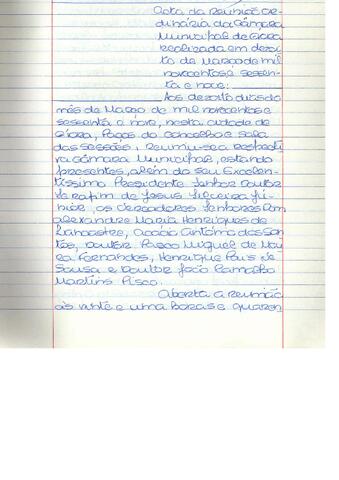 Acta da Reunião Or-
dinária da Câmara
Municipal de Évora
realizada em dezoi-
to de Março de mil
novecentos e sessen-
ta e nove:
Aos dezoito dias do
mês de Março de mil novecentos e
sessenta e nove, nesta cidade de
Évora, Paços do Concelho e sala
das sessões, reuniu-se a respecti-
va Câmara Municipal, estando
presentes, além do seu Excelen-
tíssimo Presidente Senhor Doutor
Serafim de Jesus Silveira Jú-
nior, os Vereadores Senhores Dom
Alexandre Maria Henriques de
Lancastre, Acácio António dos San-
tos, Doutor Vasco Miguel de Mou-
ra Fernandes, Henrique Pais de
Sousa e Doutor João Ramalho
Martins Pisco.
Aberta a reunião
às vinte e uma horas e quaren